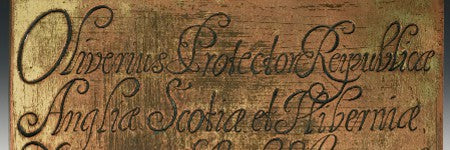 Oliverius Protector Reipublicæ
Angliæ Scotiæ et Hiberniæ